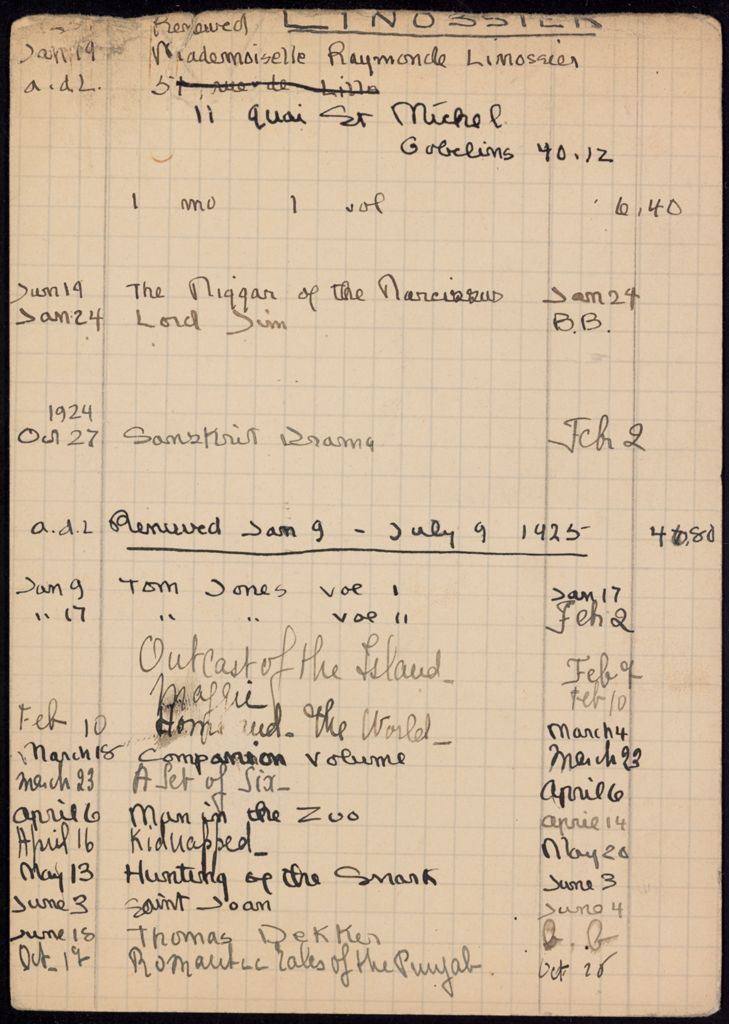 Renewed LINOSSIER
Jan 19 Mademoiselle Raymonde Linossier
a.d.L. 5, rue de Lille
11 quai St Michel
Gobelins 40.12
1 mo 1 vol 6,40
Jan 19 The Niggar of the Narcissus Jan 24
Jan 24 Lord Jim B.B.
1924
Oct 27 Sanskrit Drama Feb 2
a.d.L Renewed Jan 9 - July 9 1925
Jan 9 Tom Jones vol 1 Jan 17
" 17 " " vol 11 Feb 2
Outcast of the Island_ Feb 9
Maggie Feb 10
Feb 10 Home and the World_ March 4
March 18 Companion volume March 23
March 23 A Set of Six_ April 6
April 6 Man in the Zoo April 14
April 16 Kidnapped_ May 20
May 13 Hunting of the Snark June 3
June 3 Saint Joan June 4
June 18 Thomas Dekker B.B
Oct. 19 Romantic Tales of the Punjab. Oct 26